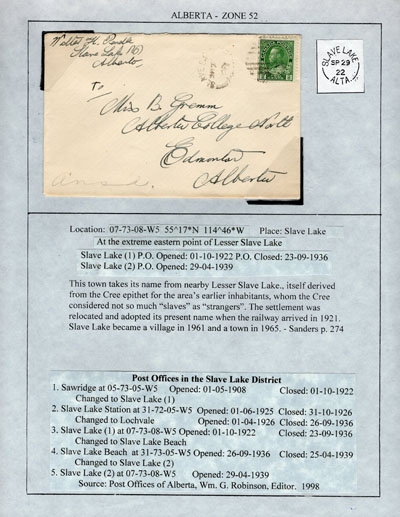 ALBERTA - ZONE 52
Slave Lake
Alberta
SLAVE LAKE
SP 29
22
ALTA.
To,
Miss B. Gremm
Alberta College North
Edmonton
Alberta
ans.
Location: 07-73-08-W5 55^17*N 114^46*W Place: Slave Lake
At the extreme eastern point of Lesser Slave Lake
Slave Lake (1) P.O. Opened: 01-10-1922 P.O. Closed: 23-09-1936
Slave Lake (2) P.O. Opened: 29-04-1939
This town takes its name from nearby Lesser Slave Lake., itself derived
from the Cree epithet for the area's earlier inhabitants, whom the Cree
considered not so much "slaves" as "strangers". The settlement was
relocated and adopted its present name when the railway arrived in 1921.
Slave Lake became a village in 1961 and a town in 1965. - Sanders p. 274
Post Offices in the Slave Lake District
1. Sawridge at 05-73-05-W5 Opened: 01-05-1908 Closed: 01-10-1922
Changed to Slave Lake (1)
2. Slave Lake Station at 31-72-05-W5 Opened: 01-06-1925 Closed: 31-10-1926
Changed to Lochvale Opened: 01-04-1926 Closed: 26-09-1936
3. Slave Lake (1) at 07-73-08-W5 Opened: 01-10-1922 Closed: 23-09-1936
Changed to Slave Lake Beach
4. Slave Lake Beach at 31-73-05-W5 Opened: 26-09-1936 Closed: 25-04-1939
Changed to Slave Lake (2)
5. Slave Lake (2) at 07-73-08-W5 Opened: 29-04-1939
Source: Post Offices of Alberta, Wm. G. Robinson, Editor. 1998